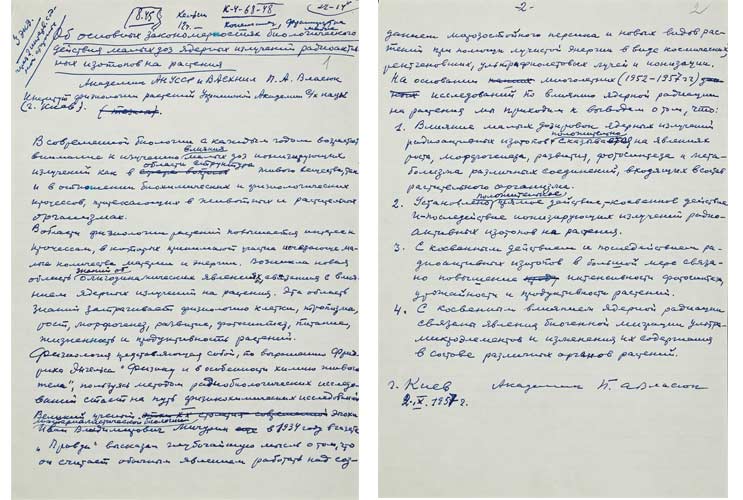 8.45
К-4-63-48
1
Об основных закономерностях биологического
действия малых доз ядерных излучений радиоактив-
ных изотопов на растения
Академик АНУССР и ВАСХНИЛ П. А. Власюк
Институт физиологии растений Украинской Академии с/х наук
(г. Киев).
В современной биологии с каждым годом возрастает
внимание к изучению влияния малых доз ионизирующих
излучений как в области структуры живого вещества, так
и в отношении биохимических и физиологических
процессов, протекающих в животных и растительных
организмах.
В области физиологии растений повышается интерес к
процессам, в которых принимают участие исчезающе ма-
лые количества материи и энергии. Возникла новая
область знаний об олигодинамических явлениях, связанная с влия-
нием ядерных излучений на растения. Эта область
знаний затрагивает физиологию клетки, тропизмы,
рост, морфогенез, развитие, фотосинтез, питание,
жизненность и продуктивность растений.
Физиология представляющая собой, по выражению Фрид-
риха Энгельса "Физику и в особенности химию живого
тела", пользуясь методом радиобиологических исследо-
ваний стает на путь физикохимических исследований
Великий ученый эпохи
материалистической биологии
Иван Владимирович Мичурин в 1934 году в газете
"Правда" высказал глубочайшую мысль о том, что
он считает обычным явлением работать над соз-
-2-
2
данием миозостойкого персика и новых видов рас-
тений при помощи лучистой энергии в виде космических,
рентгеновших, ультрафиолетовых лучей и ионизации.
На основании многолетних (1952-1957гг)
исследований по влиянию ядерной радиации
на растения мы приходим к выводам о том, что:
1. Влияние малых дозировок ядерных излучений
радиоактивных изотопов положительно сказывается на явлениях
роста, морфогенеза, развития, фотосинтеза и мета-
болизма различных соединений, входящих в состав
растительного организма.
2. Установлено положительное прямое действие, косвенное действие
и последействие ионизирующих излучений радио-
активных изотопов на растения.
3. С косвенным действием и последействием ра-
диоактивных изотопов в большой мере связа-
но повышение интенсивности фотосинтеза,
урожайности и продуктивности растений.
4. С косвенным влиянием ядерной радиации
связаны явления биогенной миграции ультра-
микроэлементов и изменения их содержания
в составе различных органов растений.
г. Киев Академик П. Власюк
2.IX.1957г.